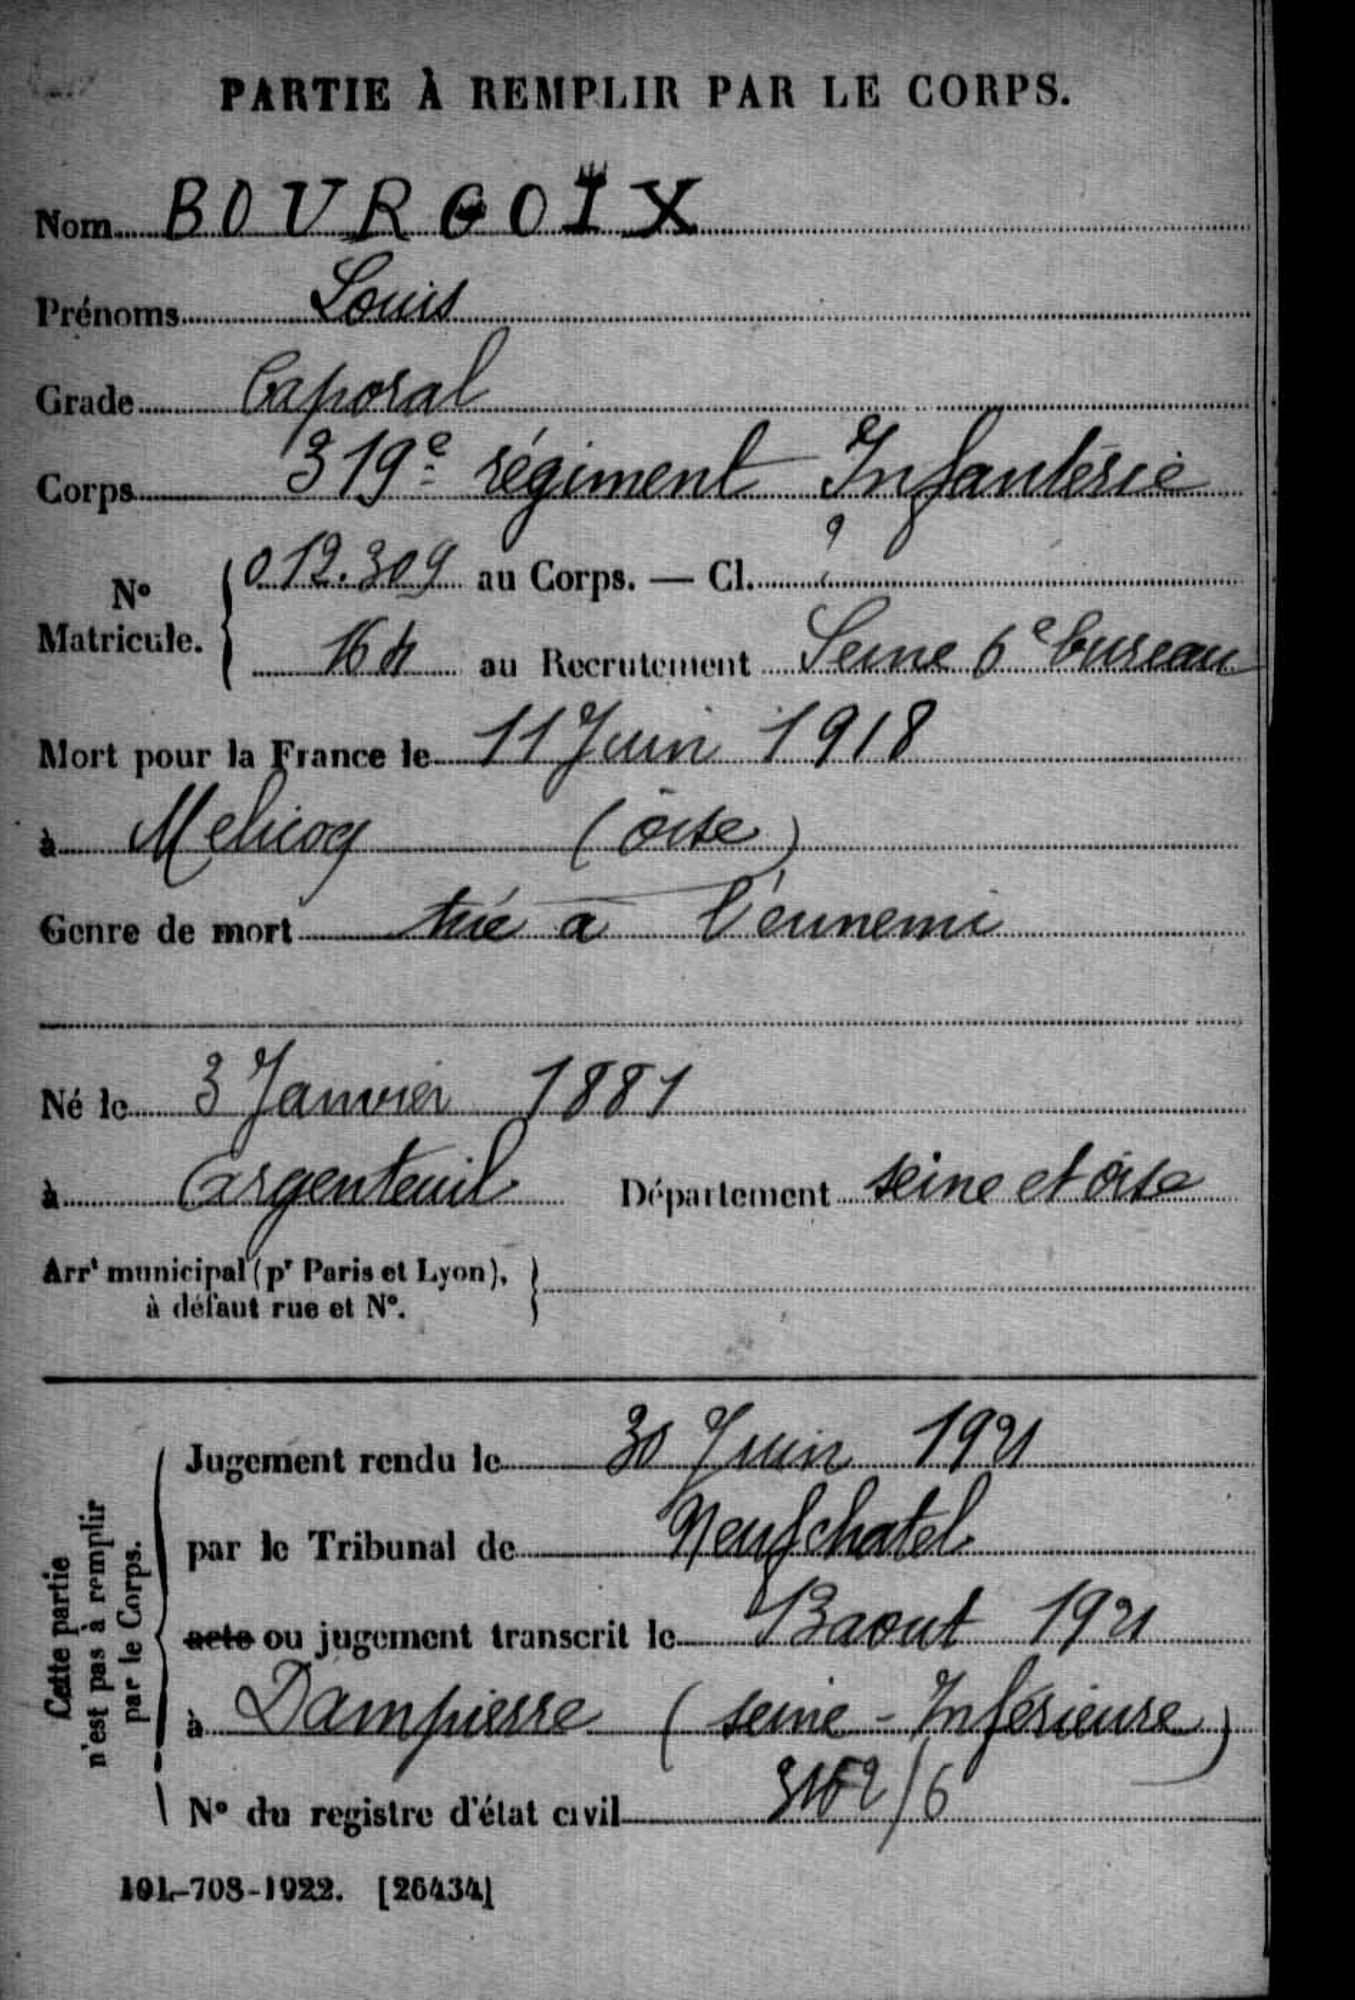 PARTIE À REMPLIR PAR LE CORPS.
Nom BOURGOIX
Prénoms Louis
Grade Caporal
Corps 319e régiment Infanterie
No Matricule. 012.309 au Corps. — Cl. ?
164 au Recrutement Seine 6e bureau
Mort pour la France le 11 Juin 1918
à Melicocq (oise)
Genre de mort tué a l'ennemi
Né le 3 Janvier 1881
à Argenteuil Département seine et oise
Arrt municipal (pr Paris et Lyon),
à défaut rue et No.
Cette partie
n'est pas à remplir
par le Corps.
Jugement rendu le 30 Juin 1921
par le Tribunal de Neufchatel
acte ou jugement transcrit le 13 aout 1921
à Dampierre (seine - Inférieure)
No du registre d'état civil /6
101-708-1922. [26434]